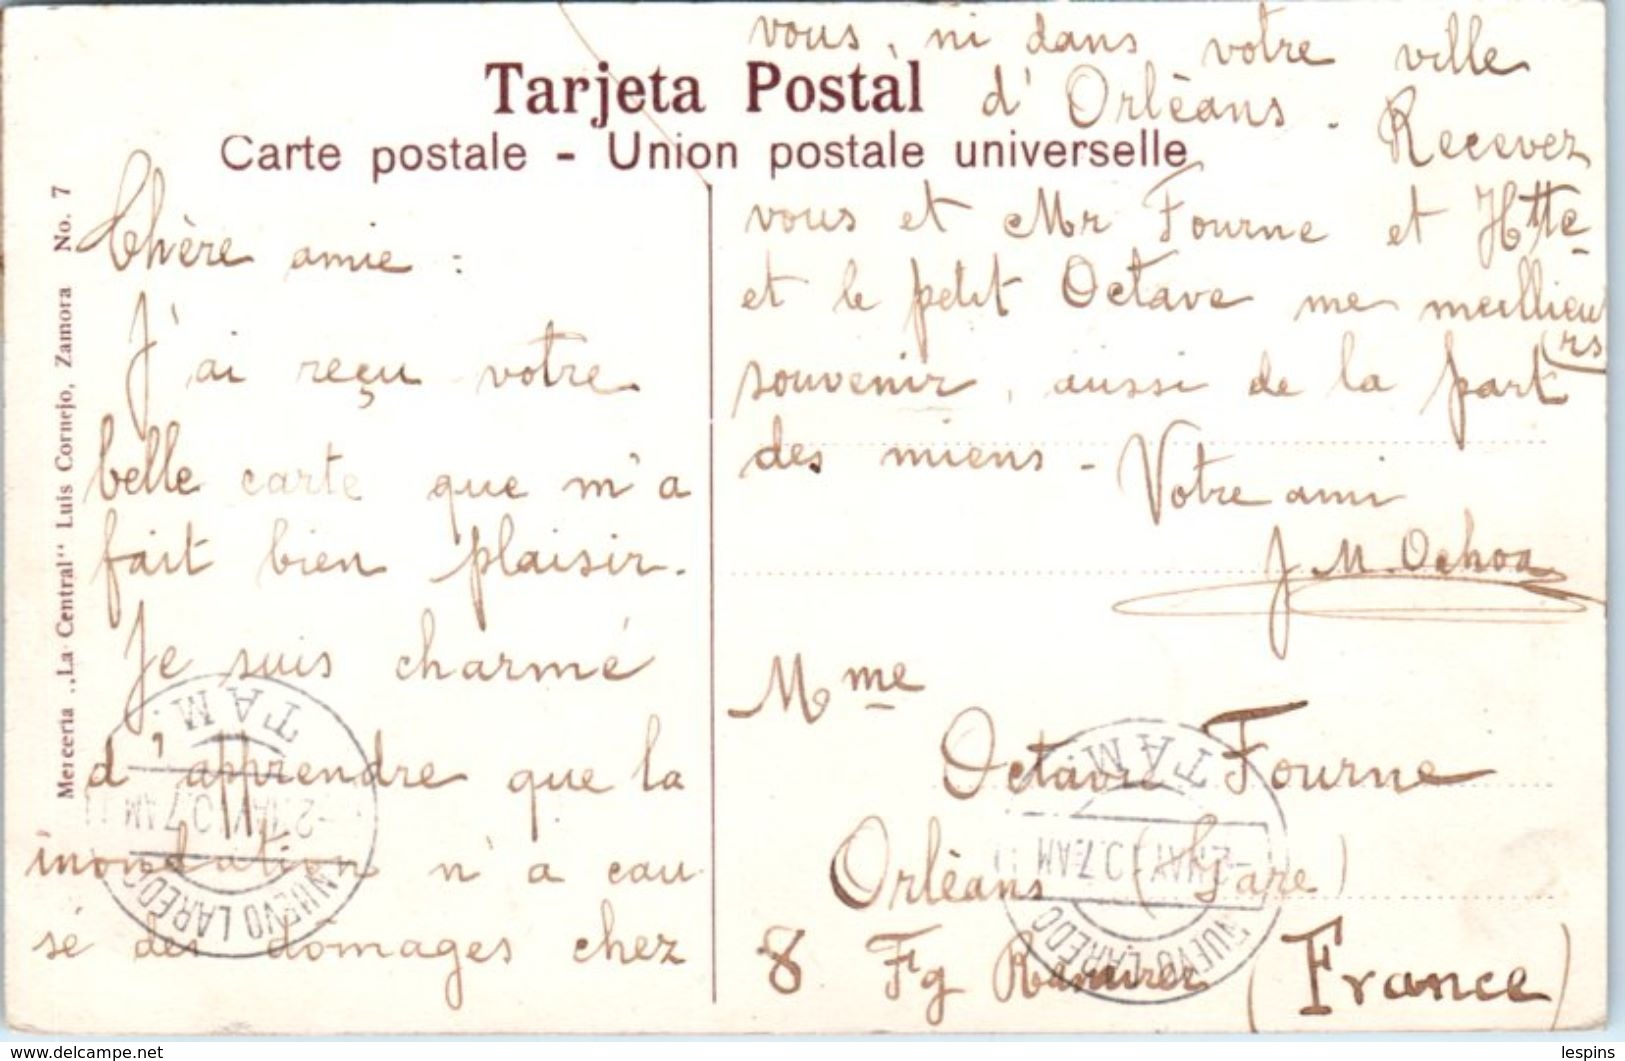 Tarjeta Postal
Carte postale - Union postale universelle
Merceria „La Central“ Luis Cornejo, Zamora No. 7
Chère amie :
J'ai reçu votre
belle carte que m'a
fait bien plaisir.
Je suis charmé
d'apprendre que la
inondation n'a cau
sé des domages chez
vous, ni dans votre ville
d'Orlèans. Recevez
vous et Mr Fourne et Htte
et le petit Octave me meillieu
rs
souvenir, aussi de la part
des miens - Votre ami
J. M. Ochoa
Mme
Octave Fourne
Orlèans (Gare)
8 Fg Bannier (France)
NUEVO LAREDO
TAM.
-2 MAY 10. 7 AM
NUEVO LAREDO
TAM.
-2 MAY 10. 7 AM
lespins